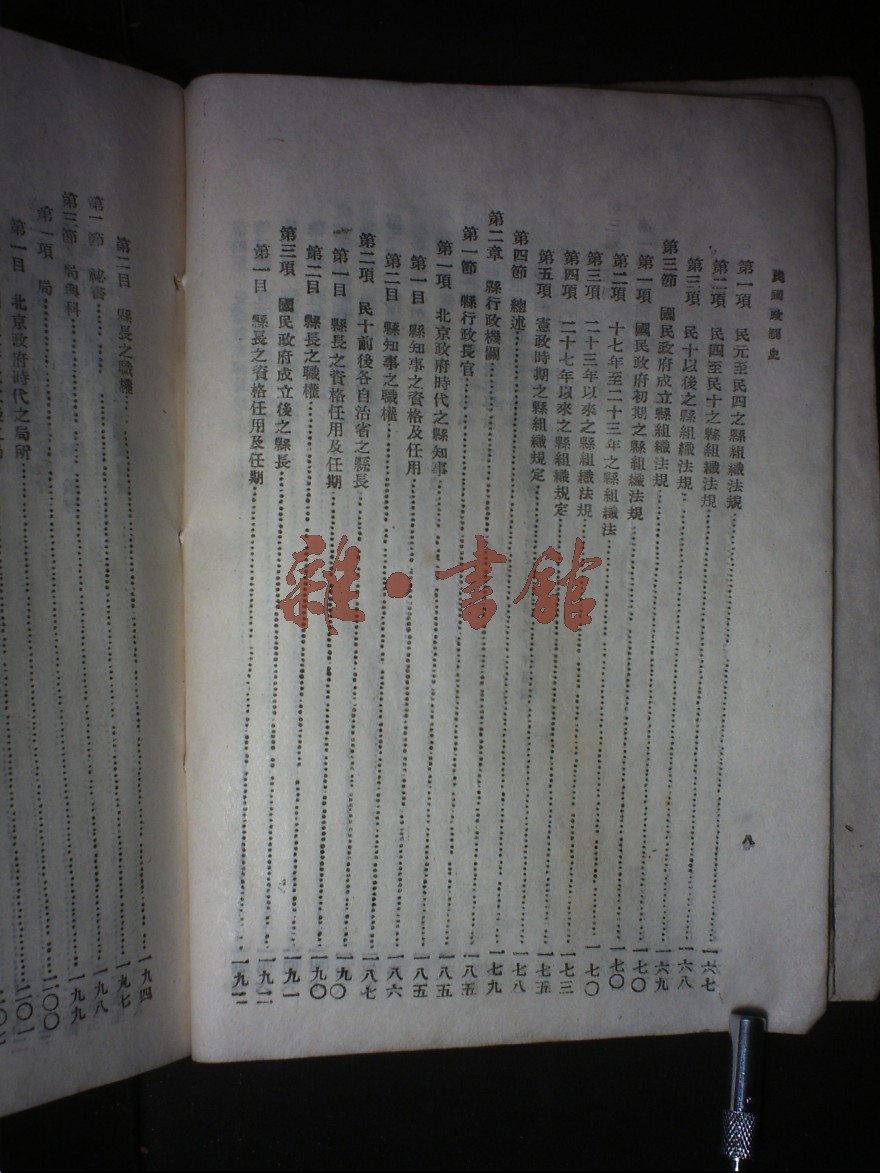 民國政制史
八
第一項 民元至民四之縣組織法規 一六七
第二項 民四至民十之縣組織法規 一六八
第三項 民十以後之縣組織法規 一六九
第三節 國民政府成立縣組織法規 一七〇
第一項 國民政府初期之縣組織法規 一七〇
第二項 十七年至二十三年之縣組織法 一七〇
第三項 二十三年以來之縣組織法規 一七三
第四項 二十七年以來之縣組織規定 一七五
第五項 憲政時期之縣組織規定 一七八
第四節 總述 一七九
第二章 縣行政機關 一八五
第一節 縣行政長官 一八五
第一項 北京政府時代之縣知事 一八五
第一目 縣知事之資格及任用 一八六
第二目 縣知事之職權 一八七
第二項 民十前後各自治省之縣長 一九〇
第一目 縣長之資格任用及任期 一九〇
第二目 縣長之職權 一九一
第三項 國民政府成立後之縣長 一九二
第一目 縣長之資格任用及任期 一九二
第二目 縣長之職權 一九四
第二節 祕書 一九七
第三節 局與科 一九八
第一項 局 一九九
第一目 北京政府時代之局所 二〇〇
二〇一
雜·書館